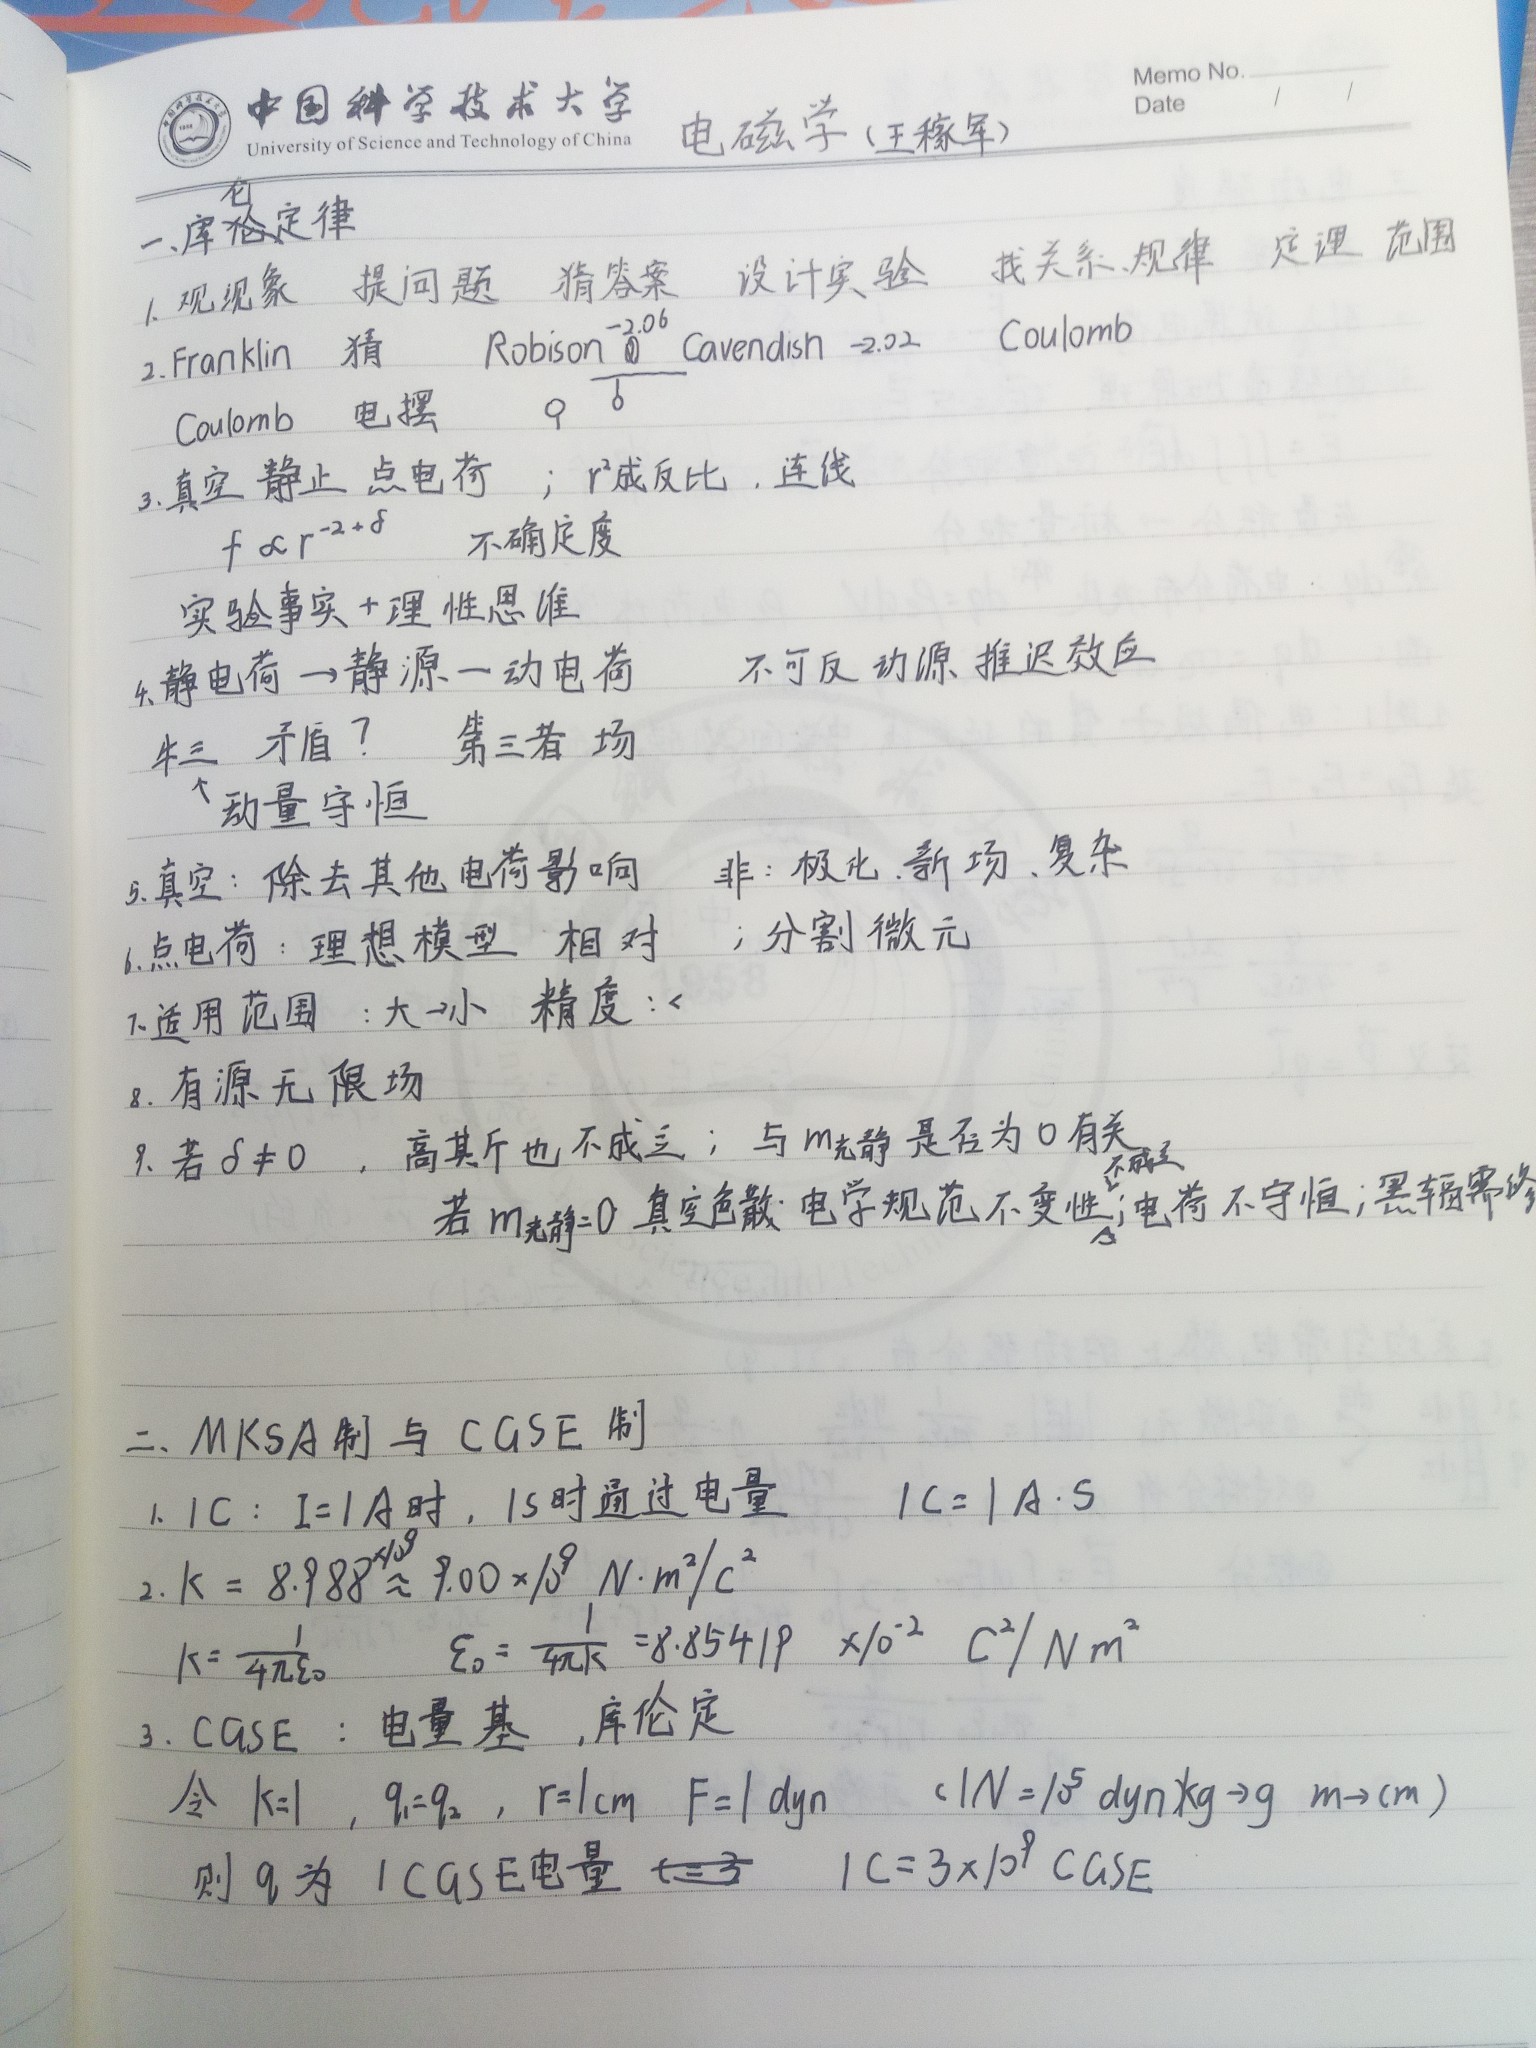 中国科学技术大学
University of Science and Technology of China
Memo No.
Date / /
电磁学(王稼军)
一、库仑定律
1. 观现象 提问题 猜答案 设计实验 找关系、规律 定理 范围
2. Franklin 猜 Robison -2.06 Cavendish -2.02 Coulomb
Coulomb 电摆
3. 真空 静止 点电荷 ; r²成反比 , 连线
f ∝ r^(-2+δ) 不确定度
实验事实+理性思维
4. 静电荷→静源—动电荷 不可反 动源 推迟效应
牛三 矛盾? 第三者 场
↑ 动量守恒
5. 真空: 除去其他电荷影响 非: 极化、新场、复杂
6. 点电荷: 理想模型 相对 ; 分割微元
7. 适用范围 : 大→小 精度: <
8. 有源无限场
9. 若δ≠0 , 高斯也不成立; 与m光静是否为0有关
若m光静=0 真空色散. 电学规范不变性不成立; 电荷不守恒; 黑辐需修
二、MKSA制与CGSE制
1. 1C: I=1A时, 1s时通过电量 1C=1A·S
2. K = 8.988×10⁹ ≈ 9.00×10⁹ N·m²/C²
K= 1/4πε₀ ε₀= 1/4πk =8.85419 ×10⁻² C²/Nm²
3. CGSE : 电量基 , 库伦定
令 k=1 , q₁=q₂ , r=1cm F=1dyn (1N=10⁵ dyn)kg→g m→cm)
则 q为 1CGSE电量 1C=3×10⁹ CGSE